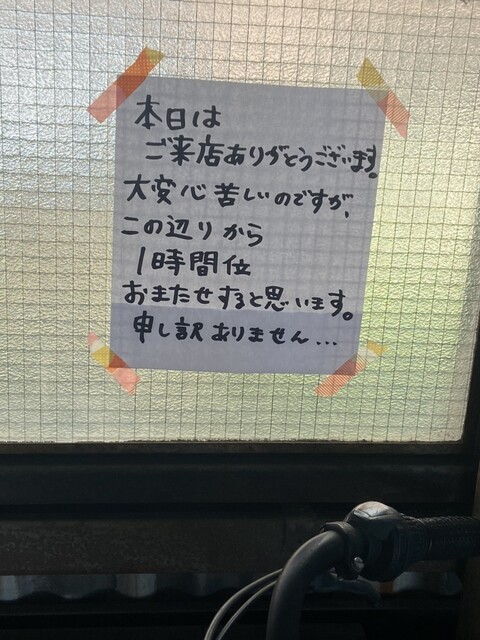 本日は
ご来店ありがとうございます。
大変心苦しいのですが、
この辺りから
1時間位
おまたせすると思います。
申し訳ありません…